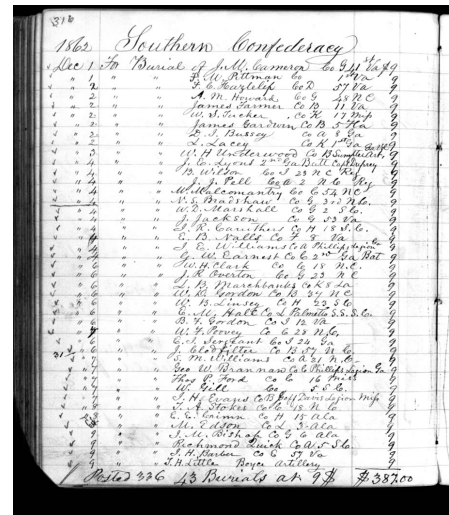 316
1862 Southern Confederacy
Dec 1 For Burial of J. M. Cameron Co G 41st Va $9
" 1 " " B. W. Pittman Co 1st Va 9
" 2 " " F. E. Huztelip Co D 57 Va 9
" 2 " " A. M. Howard Co G 48 N C 9
" 2 " " James Farmer Co B 11 Va 9
" 2 " " W. S. Tucker Co K 17 Mip 9
" 2 " " James Gardwin Co B 5 9
" 2 " " D. J. Bussey Co A 8 Ga 9
" 2 " " L. Lacey Co K 1st Ga 9
" 3 " " W. H Underwood Co B Sumpter Art. 9
" 4 " " J. C. Lyons 2nd Ga Batt Capt 9
" 4 " " B. Wilson Co I 23 N C Reg 9
" 4 " " J. J. Pell Co A 2 N C Reg 9
" 4 " " M. Malcomantry Co C 54 N C 9
" 4 " " N. S. Bradshaw Co G 3rd N. C. 9
" 4 " " W. D. Marshall Co G 2 S. C. 9
" 4 " " J. Jackson Co G 52 Va 9
" 4 " " J. R. Caruthers Co H 18 S. C. 9
" 4 " " E. B. Nalls Co F 8 Va 9
" 4 " " J. E. Williams Co A Phillips Legion 9
" 4 " " G. W. Earnest Co C 2nd Ga Bat 9
" 6 " " W. H. Clark Co C 18 N. C. 9
" 6 " " J. R Overton Co G 23 N C 9
" 6 " " L. B Marchbanks Co K 8 La 9
" 6 " " W. R Gordon Co B 37 N C 9
" 6 " " W. B. Linsey Co H 23 S C 9
" 6 " " E. M. Hall Co L Palmetto S. S. S. C. 9
" 6 " " B. F. Gordon Co I 12 Va 9
" " " W. F. Povey Co C 28 N. C. 9
" 6 " " E. J. Sergeant Co I 24 Ga 9
" 6 " " J. Clodfilter Co B 57 N. C. 9
" 7 " " S. M. Williams Co A 21 N. C. 9
" 7 " " Geo W. Brannan Co C Phillips Legion Ga 9
" 7 " " Thos P. Ford Co C 16 Miss 9
" 7 " " W. Gill Co 5 S. C. 9
" " " J. H. Evans Co B Jeff Davis Legion Mip 9
" " " J. A. Stokes Co C 18 N C 9
" " " E. E. Co H 15 Ala 9
" " " M. Edson Co L 3 Ala 9
" 9 " " J. M. Bishop Co G 6 Ala 9
" 9 " " Richmond Quick Co A 5 S. C. 9
" 9 " " J. H. Barber Co E 57 Va 9
" 9 " " J. H. Little Boyce Artillery 9
Posted 336 43 Burials at 9 $ $387.00